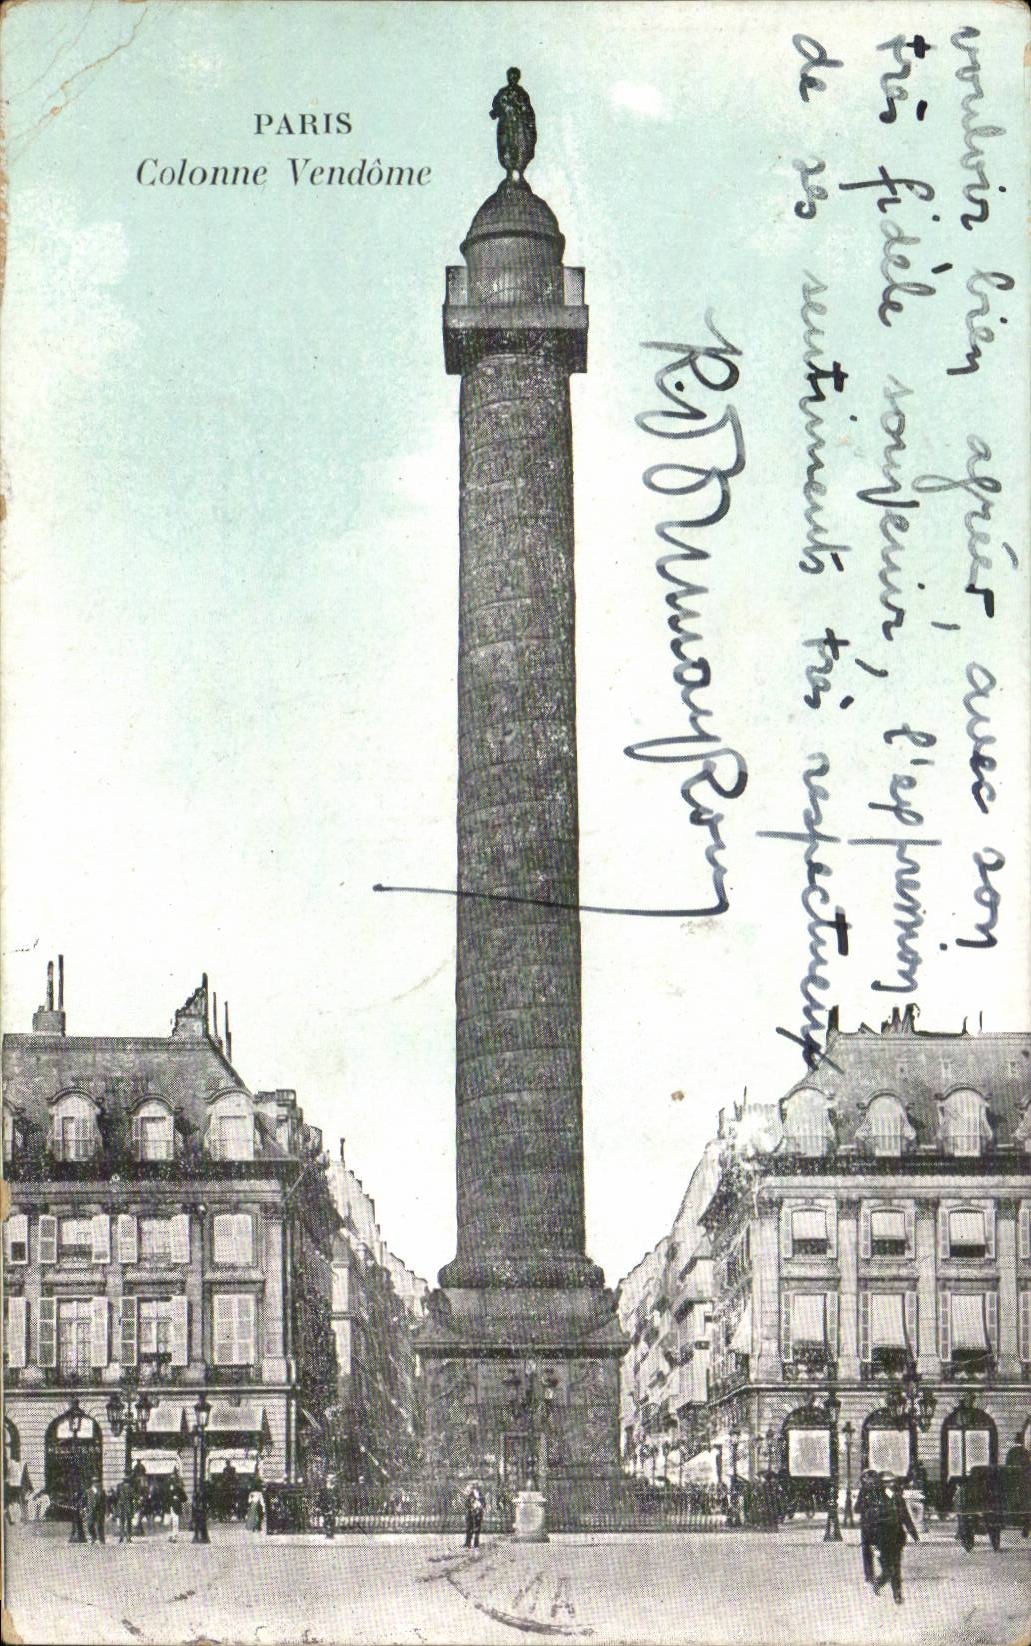 PARIS
Colonne Vendôme
vouloir bien agréer, avec son
très fidèle souvenir, l'expression
de ses sentiments très respectueux